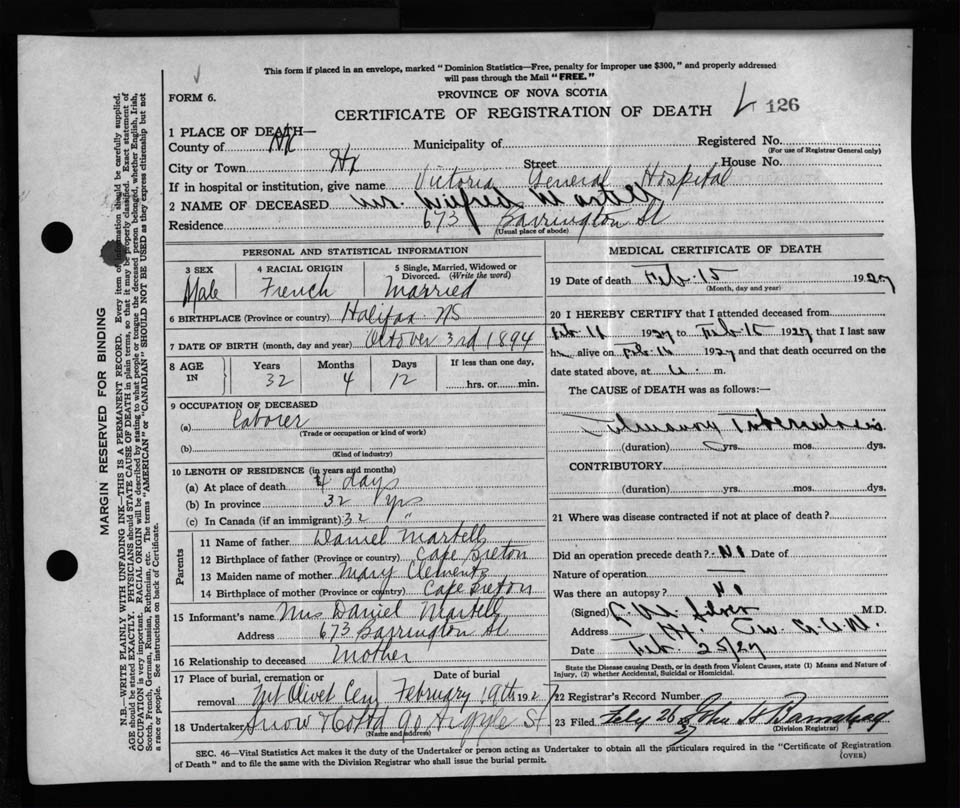 This form if placed in an envelope, marked "Dominion Statistics—Free, penalty for improper use $300," and properly addressed
will pass through the Mail "FREE."
FORM 6.
PROVINCE OF NOVA SCOTIA
CERTIFICATE OF REGISTRATION OF DEATH
126
1 PLACE OF DEATH—
County of Hx Municipality of Registered No.
(For use of Registrar General only)
City or Town Hx Street House No.
If in hospital or institution, give name Victoria General Hospital
2 NAME OF DECEASED Mr. Wilfred Martell
Residence 673 Barrington St
(Usual place of abode)
PERSONAL AND STATISTICAL INFORMATION
3 SEX 4 RACIAL ORIGIN 5 Single, Married, Widowed or
Divorced. (Write the word)
Male French Married
6 BIRTHPLACE (Province or country) Halifax NS
7 DATE OF BIRTH (month, day and year) October 3rd 1894
8 AGE IN Years Months Days If less than one day,
32 4 12 hrs. or min.
9 OCCUPATION OF DECEASED
(a) Laborer
(Trade or occupation or kind of work)
(b)
(Kind of industry)
10 LENGTH OF RESIDENCE (in years and months)
(a) At place of death 4 days
(b) In province 32 yrs
(c) In Canada (if an immigrant) 32 "
Parents
11 Name of father Daniel Martell
12 Birthplace of father (Province or country) Cape Breton
13 Maiden name of mother Mary Clements
14 Birthplace of mother (Province or country) Cape Breton
15 Informant's name Mrs Daniel Martell
Address 673 Barrington St
16 Relationship to deceased Mother
17 Place of burial, cremation or Date of burial
removal Mt Olivet Cem February 19th 1927
18 Undertaker Snow & Co Ltd 90 Argyle St
(Name and address)
MEDICAL CERTIFICATE OF DEATH
19 Date of death Feb. 15 1927
(Month, day and year)
20 I HEREBY CERTIFY that I attended deceased from
Feb 11 1927 to Feb 15 1927 that I last saw
h alive on Feb 14 1927 and that death occurred on the
date stated above, at m.
The CAUSE of DEATH was as follows:
Pulmonary Tuberculosis
(duration) yrs. mos. dys.
CONTRIBUTORY
(duration) yrs. mos. dys.
21 Where was disease contracted if not at place of death?
Did an operation precede death? No Date of
Nature of operation
Was there an autopsy? No
(Signed) M.D.
Address
Date Feb. 25/27
State the Disease causing Death, or in death from Violent Causes, state (1) Means and Nature of
Injury, (2) whether Accidental, Suicidal or Homicidal.
22 Registrar's Record Number
23 Filed Feby 26 27 John H Barnstead
(Division Registrar)
SEC. 46—Vital Statistics Act makes it the duty of the Undertaker or person acting as Undertaker to obtain all the particulars required in the "Certificate of Registration
of Death" and to file the same with the Division Registrar who shall issue the burial permit.
(OVER)
MARGIN RESERVED FOR BINDING
N.B.—WRITE PLAINLY WITH UNFADING INK—THIS IS A PERMANENT RECORD. Every item of information should be carefully supplied.
AGE should be stated EXACTLY. PHYSICIANS should STATE CAUSE OF DEATH in plain terms, so that it may be properly classified. Exact statement of
OCCUPATION is very important. RACIAL ORIGIN will be described by stating to what people or tongue the deceased person belonged, whether English, Irish,
Scotch, French, German, Russian, Ruthenian, etc. The terms "AMERICAN" or "CANADIAN" SHOULD NOT BE USED as they express citizenship but not
a race or people. See instructions on back of Certificate.